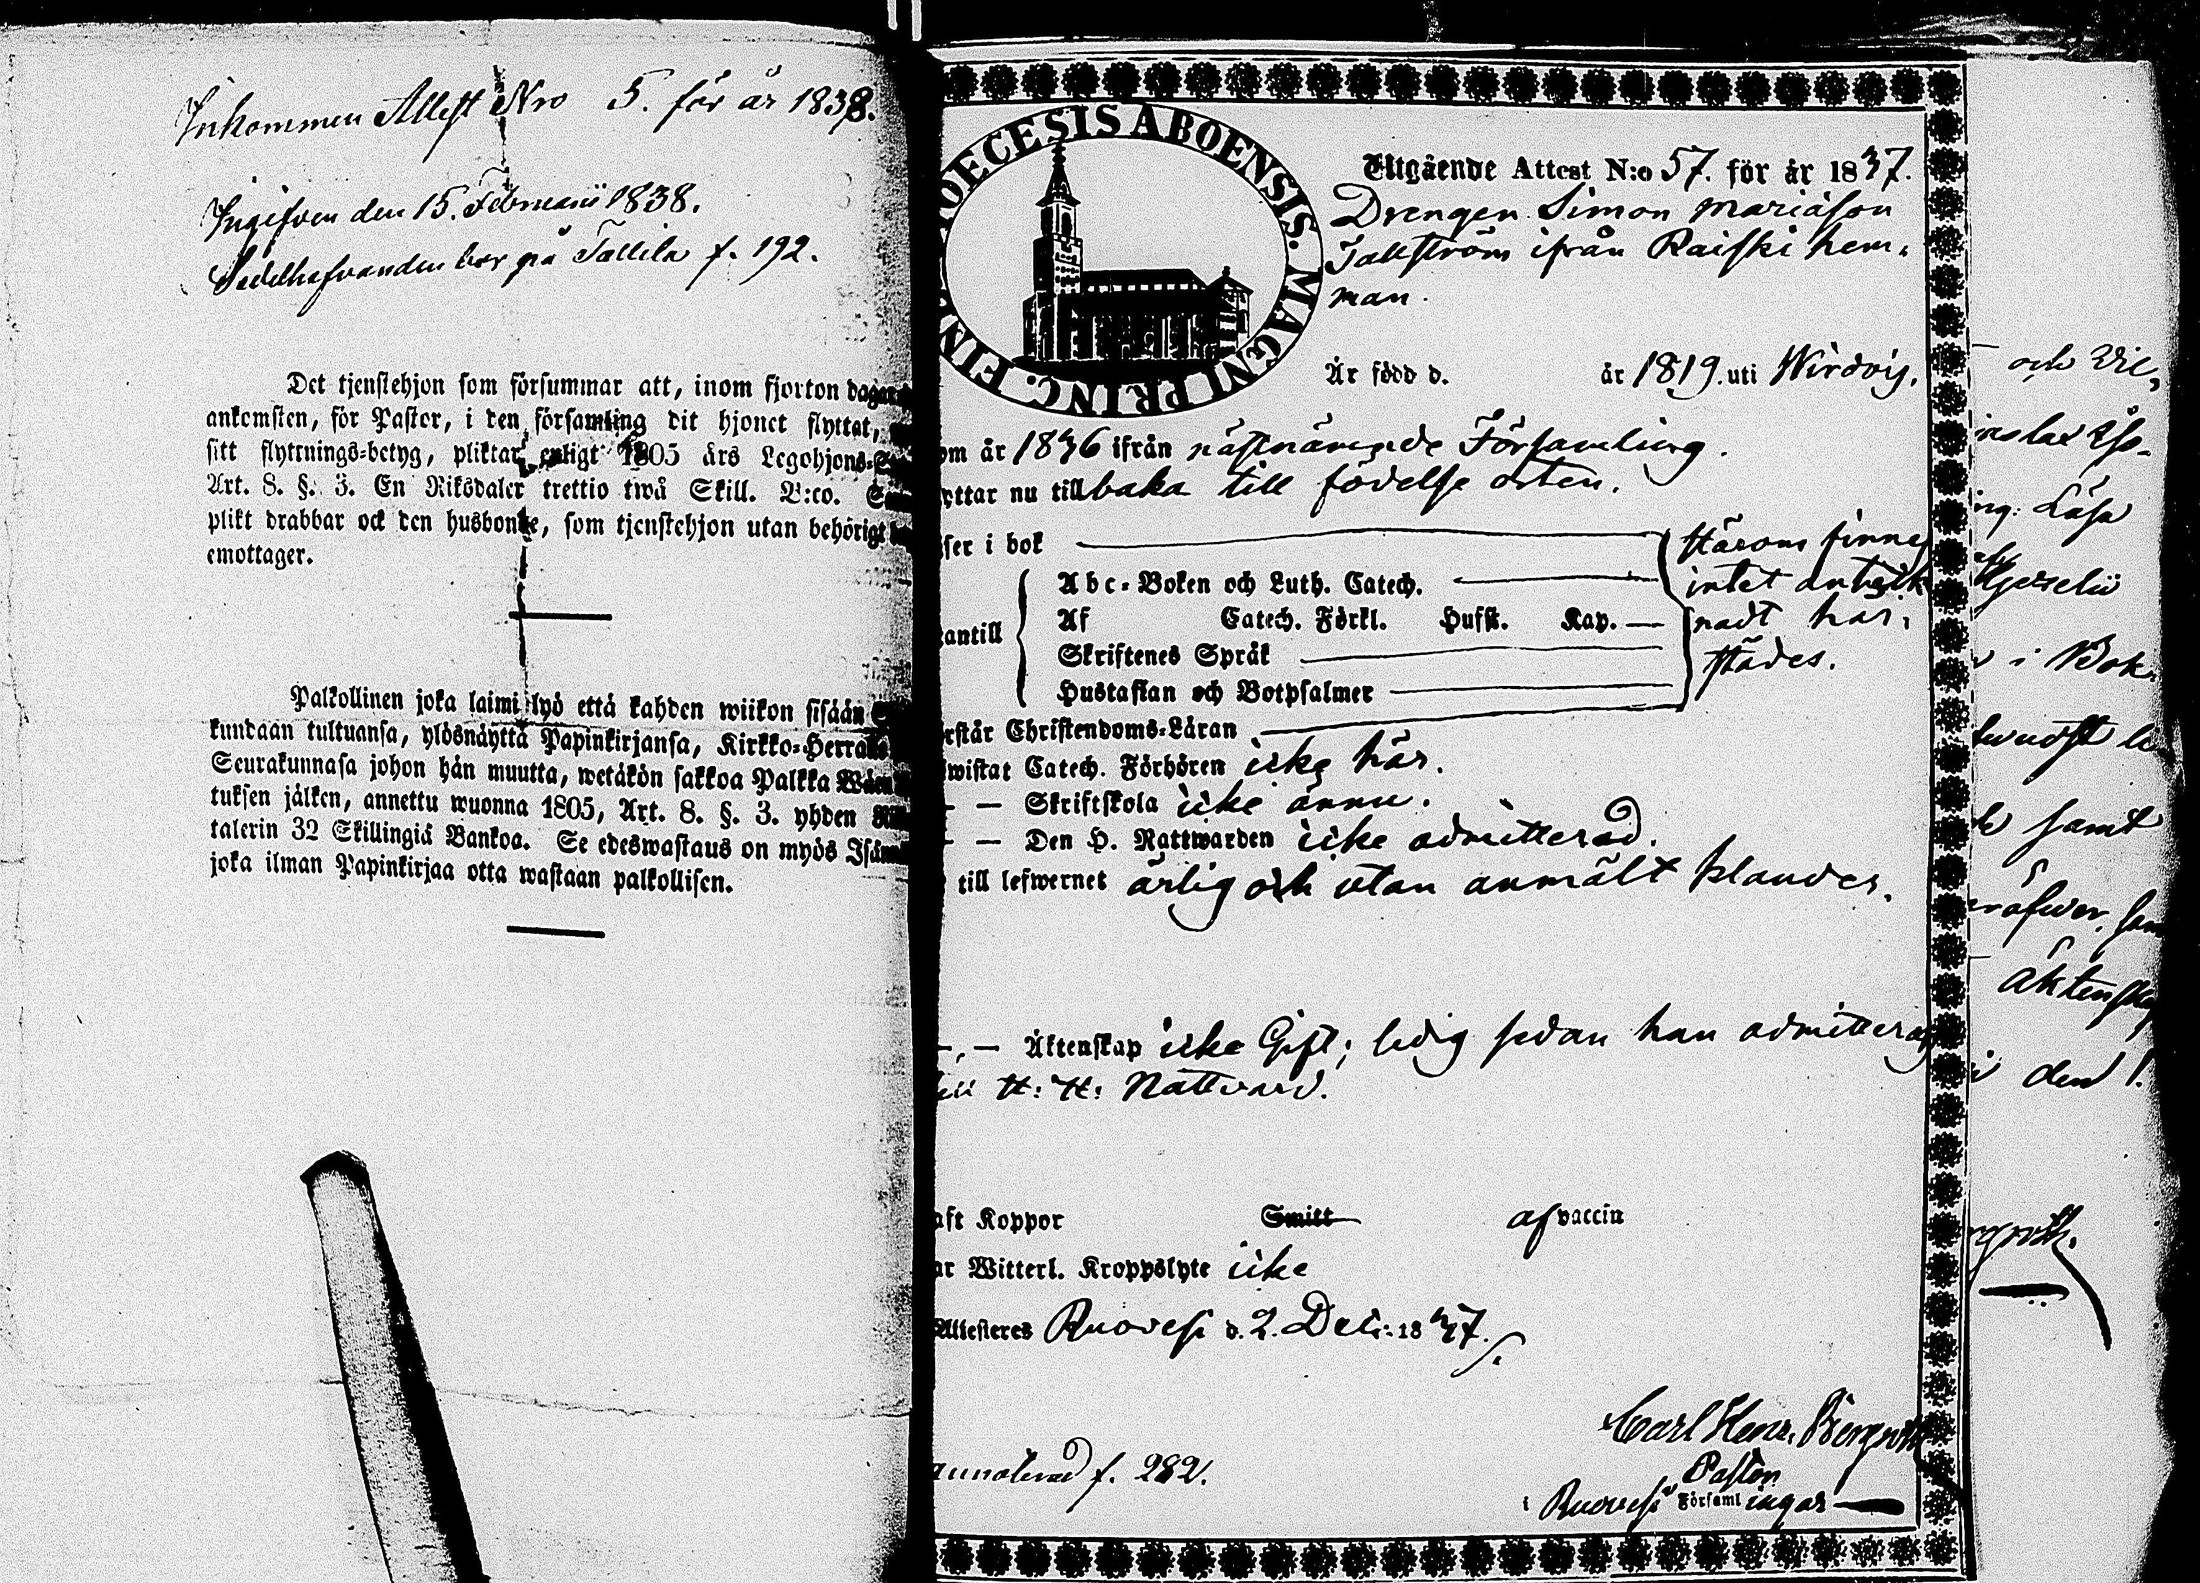 Inkommen Attest Nro 5. för år 1838.
Ingifven den 15. Februarii 1838.
Sedelhafvanden bor på Tallila f. 192.
Det tjenstehjon som försummar att, inom fjorton dagar
ankomsten, för Pastor, i den församling dit hjonet flyttat,
sitt flyttnings-betyg, pliktar enligt 1805 års Legohjons-
Art. 8. §. 3. En Riksdaler trettio twå Skill. B:co.
plikt drabbar ock den husbonde, som tjenstehjon utan behörigt
emottager.
Palkollinen joka laimi lyö että kahden wiikon sisään
kundaan tultuansa, ylösnäyttä Papinkirjansa, Kirkko-Herralle
Seurakunnasa johon hän muutta, wetäkön sakkoa Palkka Wäen
tuksen jälken, annettu wuonna 1805, Art. 8. §. 3. yhden
talerin 32 Skillingiä Bankoa. Se edeswastaus on myös Isän
joka ilman Papinkirjaa otta wastaan palkollisen.
DIOECESIS ABOENSIS. MAGNI PRINC. FIN
Utgående Attest N:o 57. för år 1837.
Drengen Simon Mariæson
Jallström ifrån Raiski hem-
man.
Är född d. år 1819. uti Wirdois.
om år 1836 ifrån nästnämnde Församling.
yttar nu tillbaka till födelse orten.
ser i bok
Härom finnes
Abc-Boken och Luth. Catech.
intet anteck-
Af Catech. Förkl. Husst. Kap.
nadt här-
antill
Skriftenes Språk
städes.
Hustaflan och Botpsalmer
rstår Christendoms-Läran
wistat Catech. Förhören icke här.
— — Skriftskola icke ännu.
— — Den H. Nattwarden icke admitterad.
till lefwernet ärlig och utan anmält klander.
—,— Äktenskap icke Gift; ledig sedan han admitteras
till H: H: Nattvard.
aft Koppor Smitt af vaccin
ar Witterl. Kroppslyte icke
Attesteres Ruovesi d. 2. Dec: 1837.
Carl Henr. Bergroth
Pastor
i Ruovesi Församlingar
annoterad f. 282.
och Vil-
ing: Läsa
i Bok
samt
äktenskap
den 1.